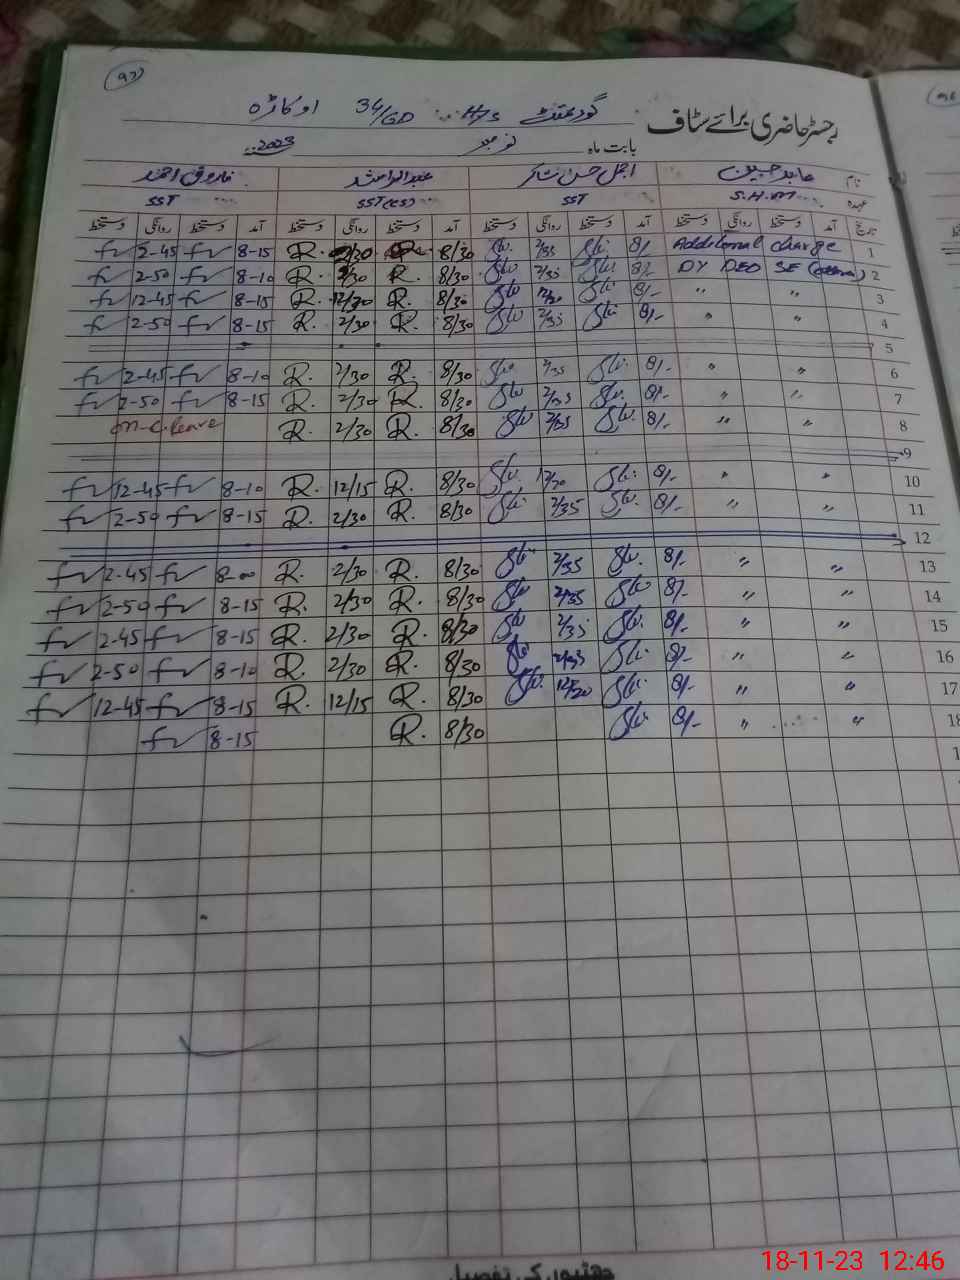 97
رجسٹر حاضری برائے سٹاف گورنمنٹ H/S 34/GD اوکاڑہ
بابت ماہ نومبر 2023
نام عابد حسین اجمل حسن شاکر عبدالراشد فاروق احمد
عہدہ S.H.M SST SST(CS) SST
تاریخ آمد دستخط روانگی دستخط آمد دستخط روانگی دستخط آمد دستخط روانگی دستخط آمد دستخط روانگی دستخط
1 Additional charge 8/- 2/35 8/30 R. 2/30 R. 8-15 2-45
2 DY DEO SE 8/- 2/35 8/30 R. 2/30 R. 8-10 2-50
3 " " 8/- 12/30 8/30 R. 12/30 R. 8-15 12-45
4 " " 8/- 2/35 8/30 R. 2/30 R. 8-15 2-50
5
6 " " 8/- 2/35 8/30 R. 2/30 R. 8-10 2-45
7 " " 8/- 2/35 8/30 R. 2/30 R. 8-15 2-50
8 " " 8/- 2/35 8/30 R. 2/30 R. on c. leave
9
10 " " 8/- 8/30 R. 12/15 R. 8-10 12-45
11 " " 8/- 2/35 8/30 R. 2/30 R. 8-15 2-50
12
13 " " 8/- 2/35 8/30 R. 2/30 R. 8-00 2-45
14 " " 8/- 2/35 8/30 R. 2/30 R. 8-15 2-50
15 " " 8/- 2/35 8/30 R. 2/30 R. 8-15 2-45
16 " " 8/- 2/35 8/30 R. 2/30 R. 8-10 2-50
17 " " 8/- 12/30 8/30 R. 12/15 R. 8-15 12-45
18 " " 8/- 8/30 R. 8-15
چھٹیوں کی تفصیل
18-11-23 12:46